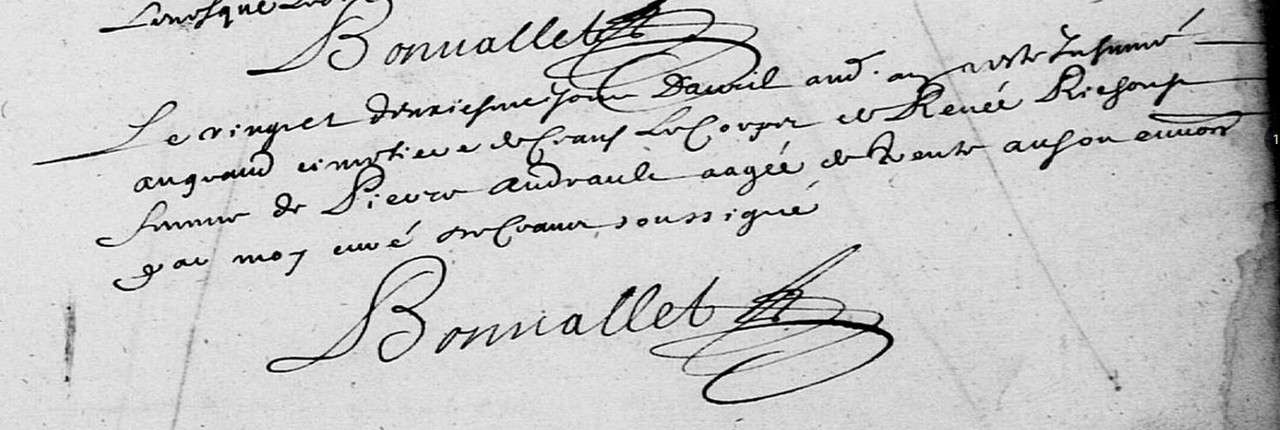 Bonuallet
Le vingt et deuxiesme jour d'auril aud. an reste Inhumé
au grand cimetiere de Crans Le Corps de Renée Richous
femme de Pierre Andrault aagée de trente ans ou environ
par moy curé de Crans soussigné
Bonuallet